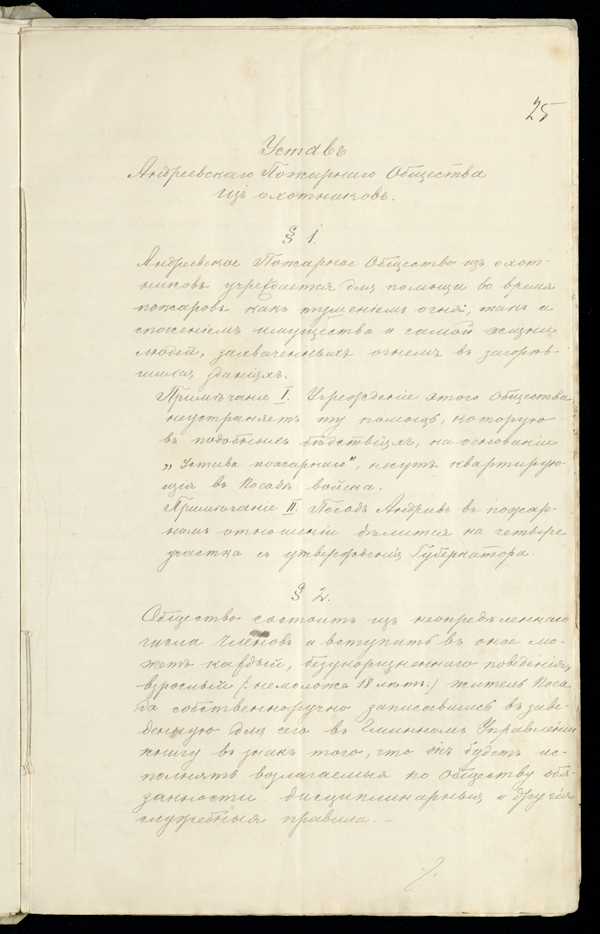 25
Уставъ
Андреевскаго Пожарнаго Общества
изъ охотниковъ.
§ 1.
Андреевское Пожарное Общество изъ охот-
никовъ учреждается для помощи во время
пожаровъ какъ тушеніемъ огня, такъ и
спасеніемъ имущества и самой жизни
людей, захваченныхъ огнемъ въ загорѣв-
шихся зданіяхъ.
Примѣчаніе I. Учрежденіе этого Общества
неустраняетъ ту помощь, которую
въ подобныхъ бѣдствіяхъ, на основаніи
„Устава пожарнаго", несутъ квартирую-
щія въ Посадѣ войска.
Примѣчаніе II. Посадъ Андреевъ въ пожар-
номъ отношеніи дѣлится на четыре
участка съ утвержденія Губернатора.
§ 2.
Общество состоитъ изъ неопредѣленнаго
числа членовъ и вступить въ оное мо-
жетъ каждый, безукоризненнаго поведенія,
взрослый (: немоложе 18 лѣтъ :) житель Поса-
да собственноручно записавшись въ заве-
денную для сего въ Гминномъ Управленіи
книгу въ знакъ того, что онъ будетъ ис-
полнять возлагаемыя по Обществу обя-
занности дисциплинарныя и другія
служебныя правила. —